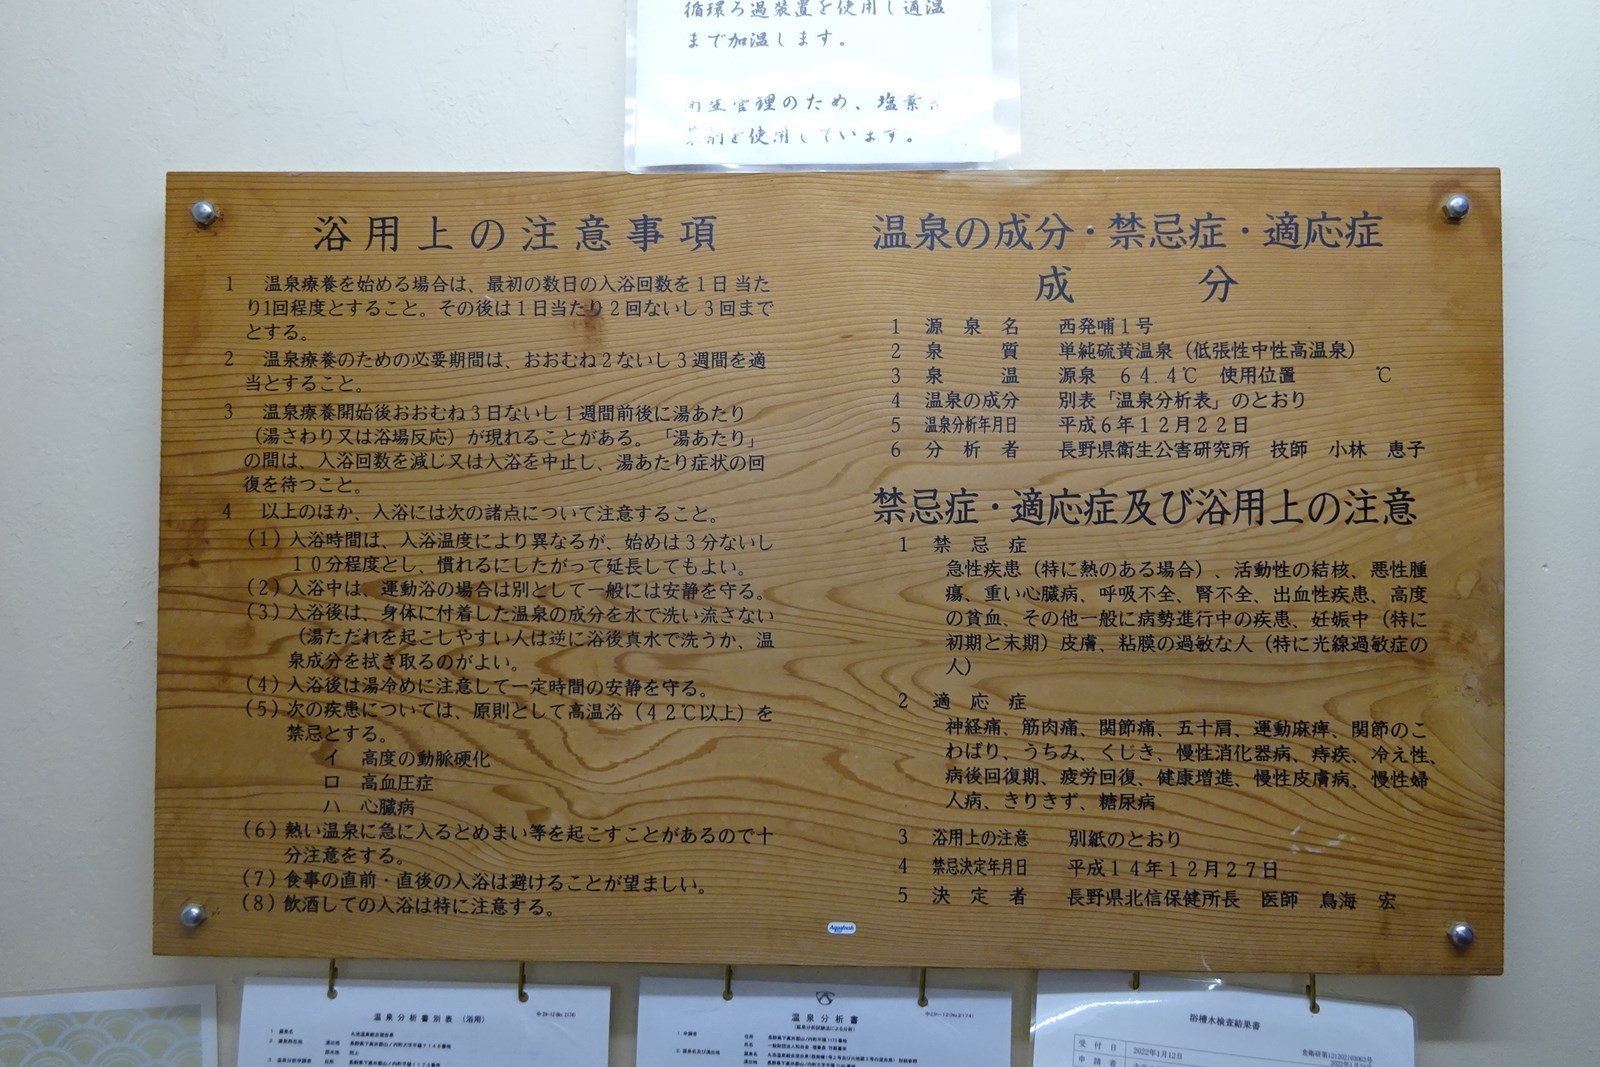 循環ろ過装置を使用し適温
まで加温します。
管理のため、塩素
剤を使用しています。
浴用上の注意事項
1 温泉療養を始める場合は、最初の数日の入浴回数を1日当た
り1回程度とすること。その後は1日当たり2回ないし3回まで
とする。
2 温泉療養のための必要期間は、おおむね2ないし3週間を適
当とすること。
3 温泉療養開始後おおむね3日ないし1週間前後に湯あたり
(湯さわり又は浴場反応)が現れることがある。「湯あたり」
の間は、入浴回数を減じ又は入浴を中止し、湯あたり症状の回
復を待つこと。
4 以上のほか、入浴には次の諸点について注意すること。
(1)入浴時間は、入浴温度により異なるが、始めは3分ないし
10分程度とし、慣れるにしたがって延長してもよい。
(2)入浴中は、運動浴の場合は別として一般には安静を守る。
(3)入浴後は、身体に付着した温泉の成分を水で洗い流さない
(湯ただれを起こしやすい人は逆に浴後真水で洗うか、温
泉成分を拭き取るのがよい。
(4)入浴後は湯冷めに注意して一定時間の安静を守る。
(5)次の疾患については、原則として高温浴(42℃以上)を
禁忌とする。
イ 高度の動脈硬化
ロ 高血圧症
ハ 心臓病
(6)熱い温泉に急に入るとめまい等を起こすことがあるので十
分注意をする。
(7)食事の直前・直後の入浴は避けることが望ましい。
(8)飲酒しての入浴は特に注意する。
温泉の成分・禁忌症・適応症
成 分
1 源泉名 西発哺1号
2 泉質 単純硫黄温泉(低張性中性高温泉)
3 泉温 源泉 64.4℃ 使用位置 ℃
4 温泉の成分 別表「温泉分析表」のとおり
5 温泉分析年月日 平成6年12月22日
6 分析者 長野県衛生公害研究所 技師 小林 恵子
禁忌症・適応症及び浴用上の注意
1 禁忌症
急性疾患(特に熱のある場合)、活動性の結核、悪性腫
瘍、重い心臓病、呼吸不全、腎不全、出血性疾患、高度
の貧血、その他一般に病勢進行中の疾患、妊娠中(特に
初期と末期)皮膚、粘膜の過敏な人(特に光線過敏症の
人)
2 適応症
神経痛、筋肉痛、関節痛、五十肩、運動麻痺、関節のこ
わばり、うちみ、くじき、慢性消化器病、痔疾、冷え性、
病後回復期、疲労回復、健康増進、慢性皮膚病、慢性婦
人病、きりきず、糖尿病
3 浴用上の注意 別紙のとおり
4 禁忌決定年月日 平成14年12月27日
5 決定者 長野県北信保健所長 医師 鳥海 宏
温泉分析書別表(浴用)
温泉分析書
(鉱泉分析試験法による分析)
浴槽水検査結果書
受付日 2022年1月12日
申請者